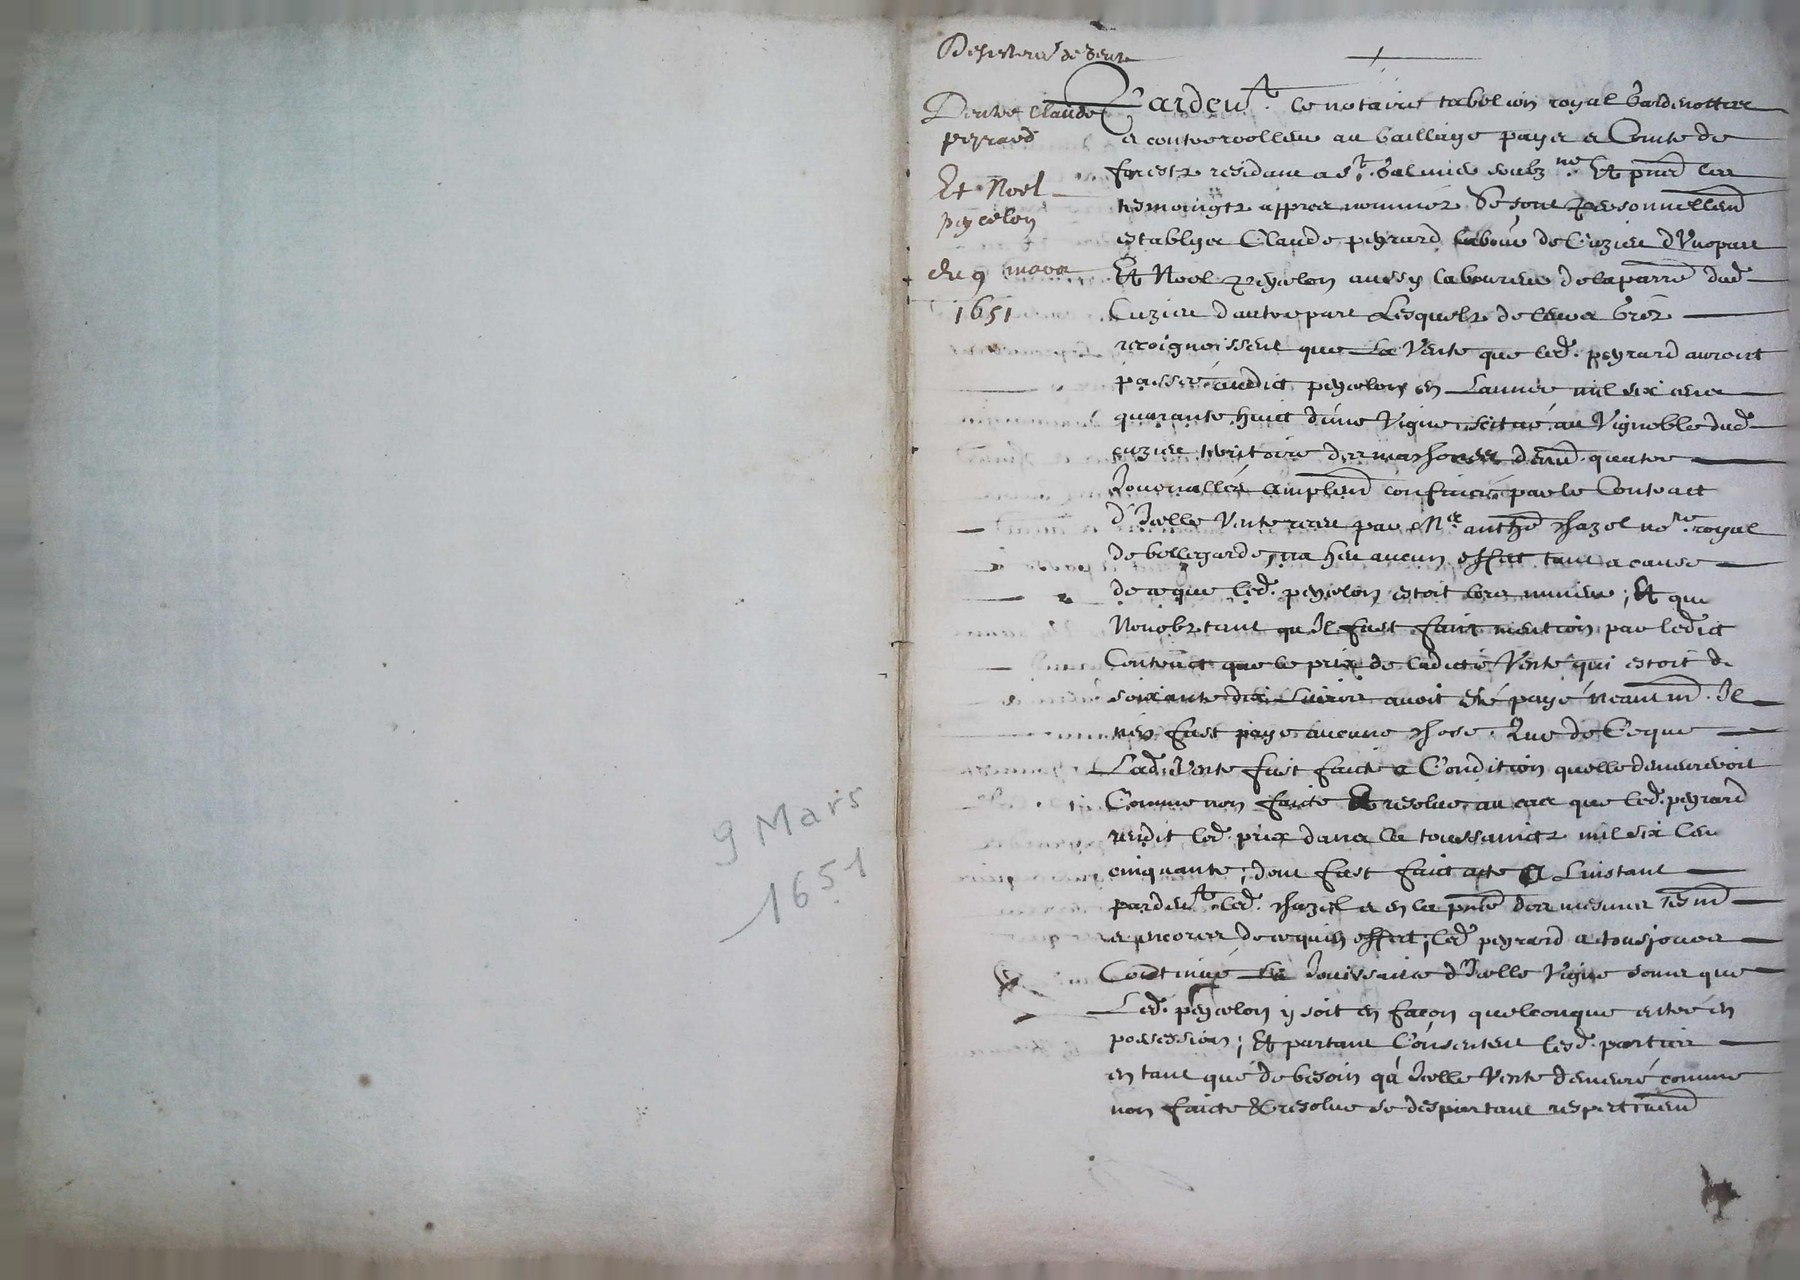 9 Mars
1651
Desistem.t de vente
Dentre Claude
peyrard
Et Noel
peycelon
du 9 mars
1651
Pardevt. le notaire tabelion royal gardenottes
et contrerolleur au bailliage pays et Comte de
forestz residant a St. Galmier soubz.né Et pnts les
tesmoingtz appres nommez Se sont personnellemt
establys Claude peyrard labour de Cuzieu d'Unepart
Et Noel peycelon aussy laboureur de laparre dud.
Cuzieu d'autre part Lesquelz de leurs grez
recoignoissent que La Vente que led. peyrard auroit
passée audict peycelon en Lannée mil six cens
quarante huict d'une Vigne scituée au Vignoble dud.
cuzieu territoire des quatre
Journallées amplemt confinée par le Contract
d'Icelle Vente receu par Me anthe Chazel nore. royal
de bellegarde, na heu aucun effect tant a cause
de ce que led. peycelon estoit lors mineur; Et que
Nonobstant qu'Il fust faict mention par ledict
Contract que le prix de ladicte Vente qui estoit de
soixante dix Livres avoit esté payé neantm. Il
n'en fust paye aucune chose. Que de Ceque
Lad. Vente fust faicte a Condition quelle demeureroit
Comme non faicte Et resolue au cas que led. peyrard
rendit led. prix dans la toussainctz mil six Cens
cinquante; dont fust faict acte a Linstant
pardevt. led. Chazel et en la pnce des mesmes Tesm.
et encores de ce quen effect, led. peyrard a tousjours
Continué La Jouissance d'Icelle Vigne sans que
Led. peycelon y soit en façon quelconque entré en
possession; Et partant Consentent lesd. parties
en tant que de besoin qa Icelle Vente demeure comme
non faicte & resolue se despartant respectivemt